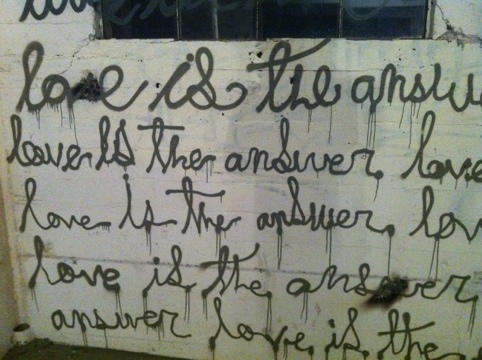 love is the answe
love is the answer, love
love is the answer, lov
love is the answer,
answer love is the